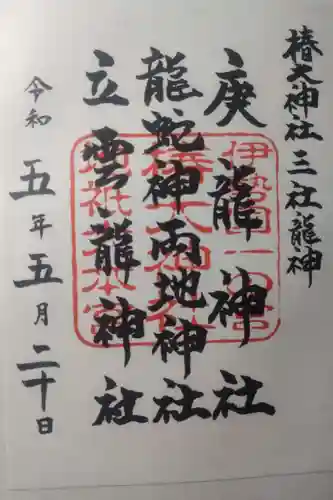 椿大神社 三社龍神
庚龍神社
龍蛇神両地神社
立雲龍神社
令和五年五月二十日
伊勢国一の宮
椿大神社